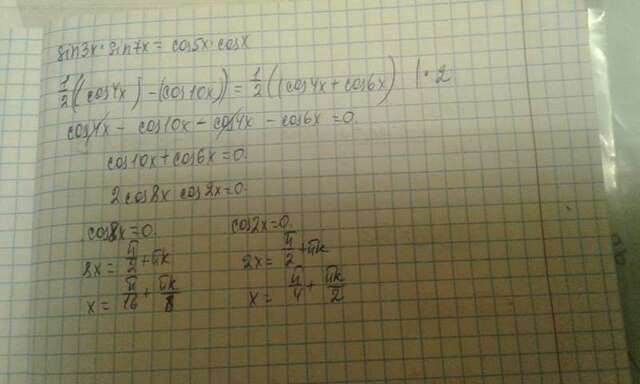 sin3x·sin7x = cos5x·cosx
1/2((cos4x) - (cos10x)) = 1/2(cos4x + cos6x) | ·2
cos4x - cos10x - cos4x - cos6x = 0.
cos10x + cos6x = 0.
2cos8x cos2x = 0.
cos8x = 0. cos2x = 0.
8x = π/2 + πk 2x = π/2 + πk
x = π/16 + πk/8 x = π/4 + πk/2